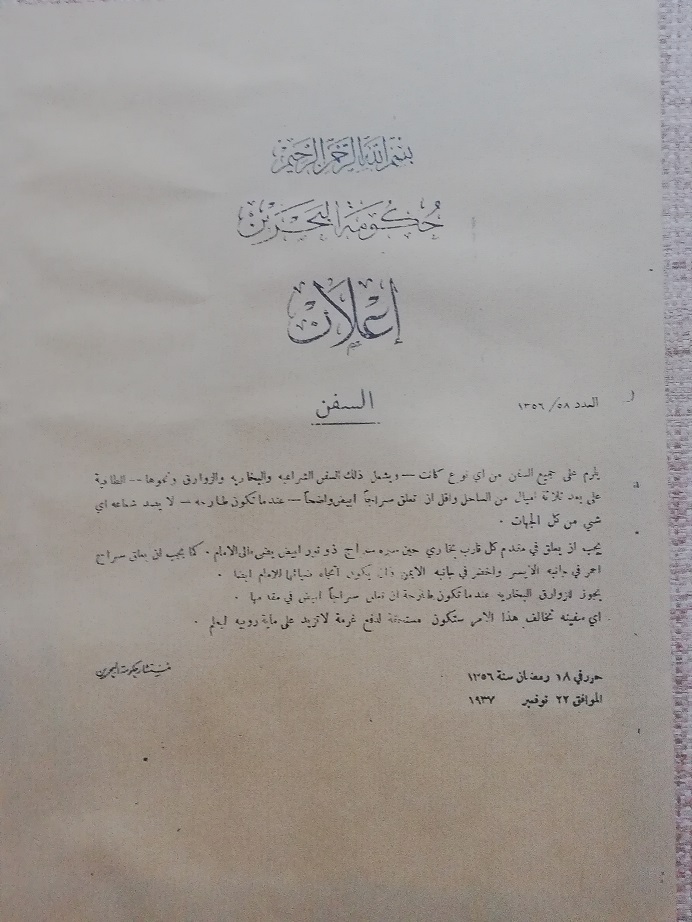 بسم الله الرحمن الرحيم
حكومة البحرين
إعلان
السفن
العدد ٥٨/ ١٣٥٦
يلزم على جميع السفن من اي نوع كانت – ويشمل ذلك السفن الشراعيه والبخاريه والزوارق ونحوها – الطافية
على بعد ثلاثة اميال من الساحل واقل ان تعلق سراجاً ابيض واضحاً – عندما تكون طارحه – لا يصد شعاعه اي
شي من كل الجهات .
يجب ان يعلق في مقدم كل قارب بخاري حين سيره سراج ذو نور ابيض يضي الى الامام . كما يجب ان يعلق سراج
احمر في جانبه الايسر واخضر في جانبه الايمن يكون اتجاه ضيائها للامام ايضا .
يجوز للزوارق البخاريه عندما تكون طارحة ان تعلق سراجاً ابيض في مقدمها .
اي سفينه تخالف هذا الامر ستكون مستحقة لدفع غرمة لا تزيد على ماية روبيه ليعلم .
حرر في ١٨ رمضان سنة ١٣٥٦
الموافق ٢٢ نوفمبر ١٩٣٧
مستشار حكومة البحرين